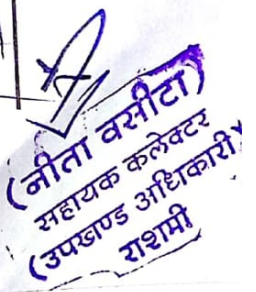 (नीता वसीटा)
सहायक कलेक्टर
(उपखण्ड अधिकारी)
राशमी